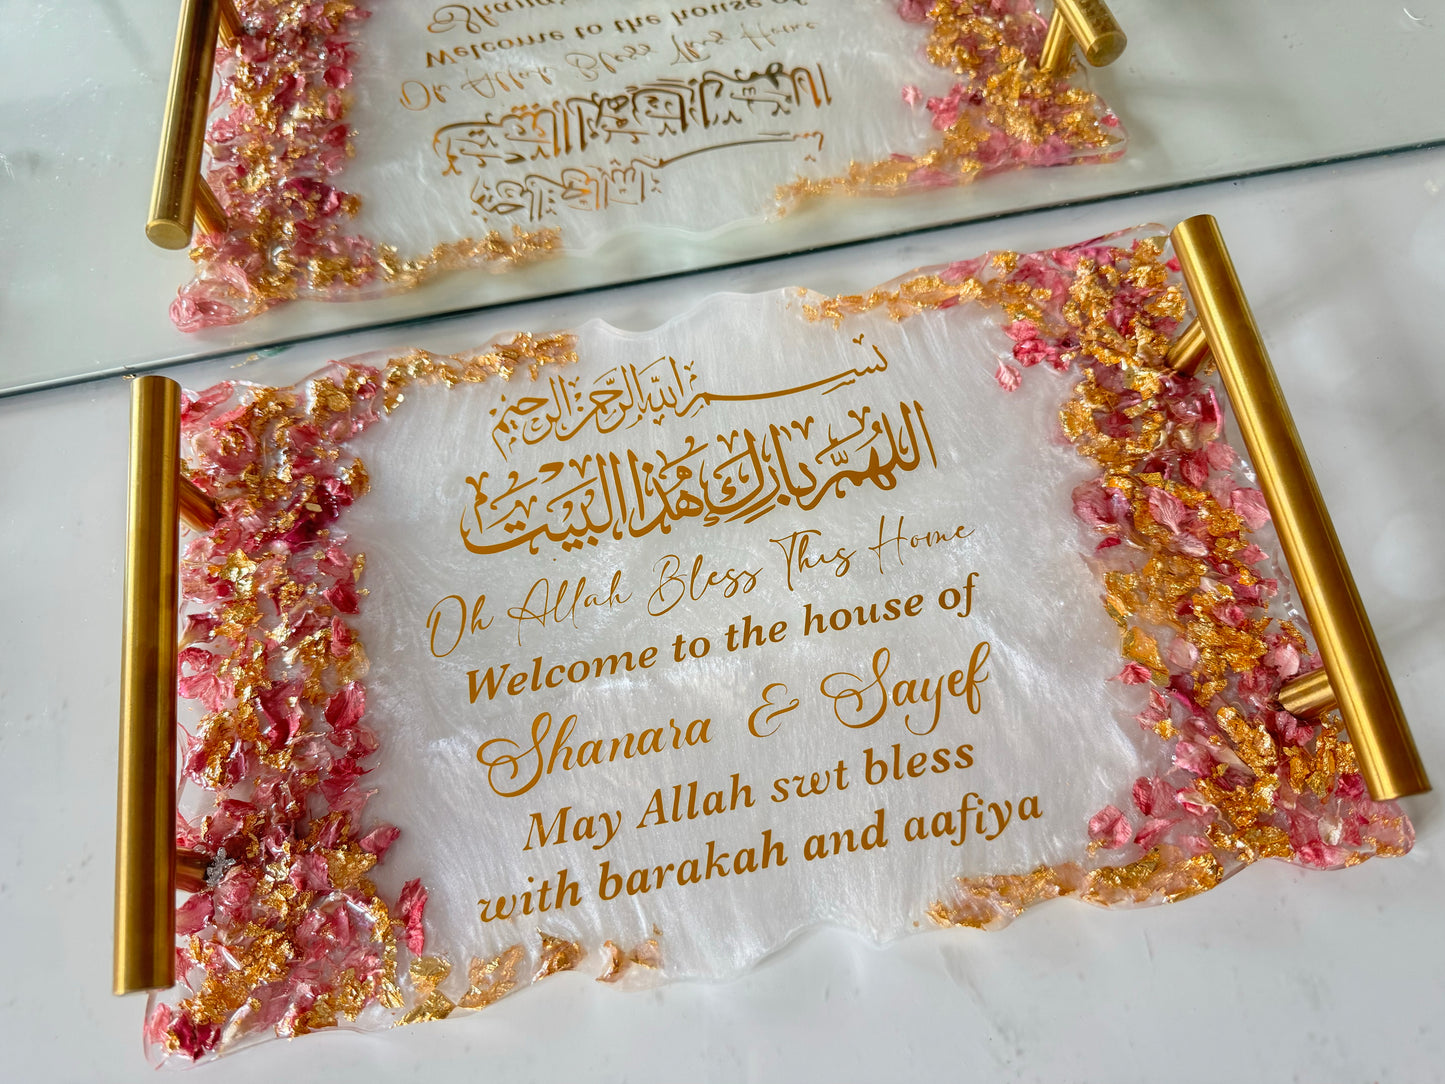 بسم الله الرحمن الرحيم
اللَّهُمَّ بَارِكْ هٰذَا الْبَيْتَ
Oh Allah Bless This Home
Welcome to the house of
Shanara & Sayef
May Allah swt bless
with barakah and aafiya